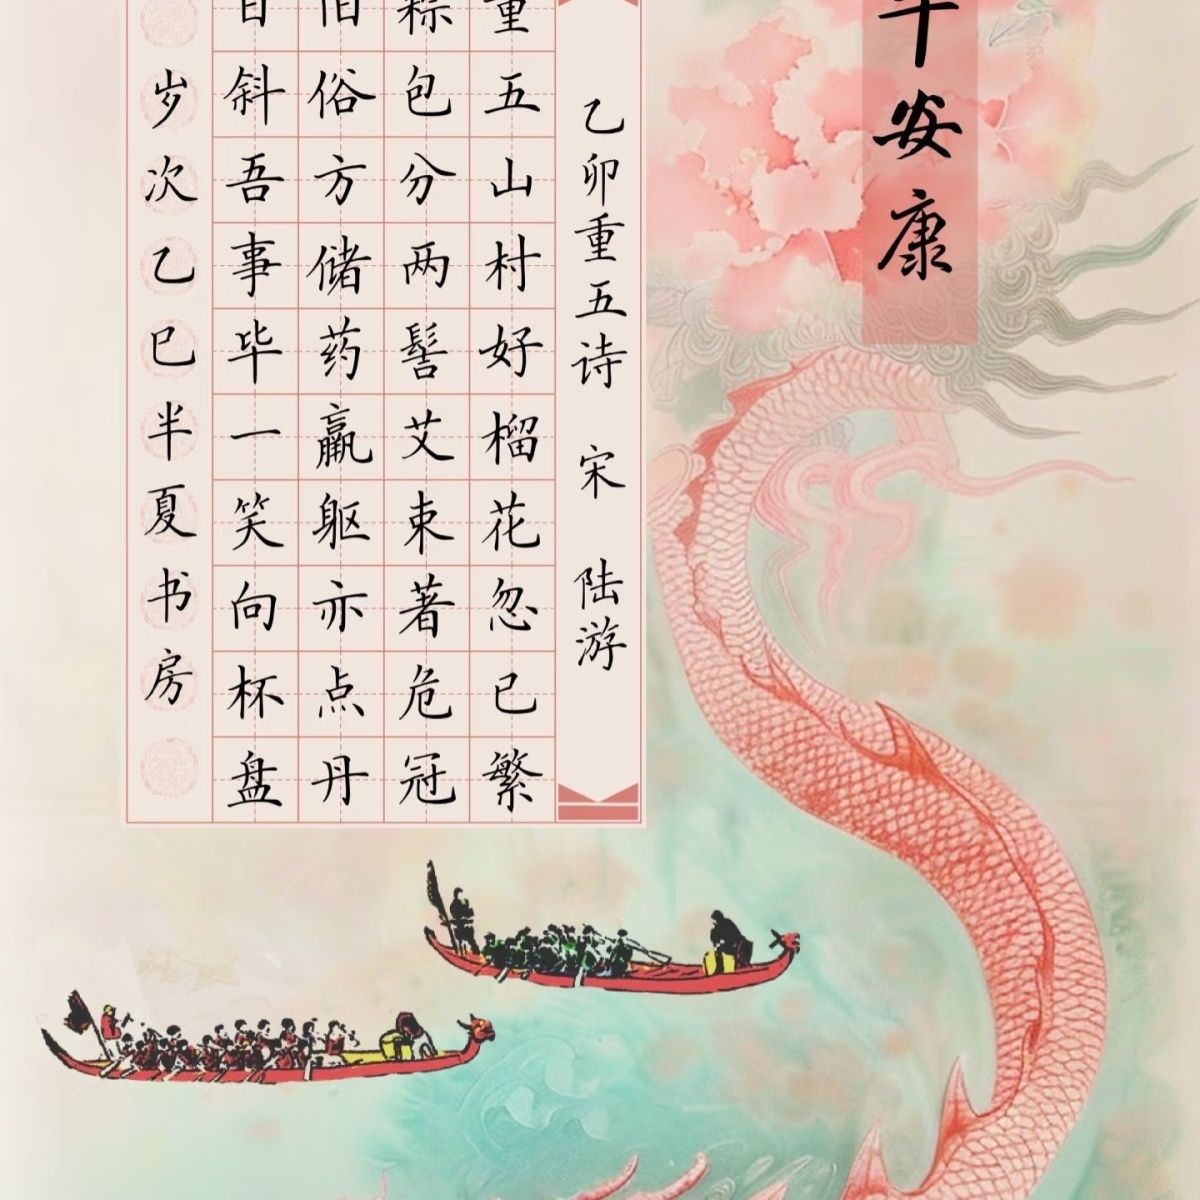 午安康
乙卯重五诗 宋 陆游
重五山村好榴花忽已繁
粽包分两髻艾束著危冠
旧俗方储药羸躯亦点丹
日斜吾事毕一笑向杯盘
岁次乙巳半夏书房